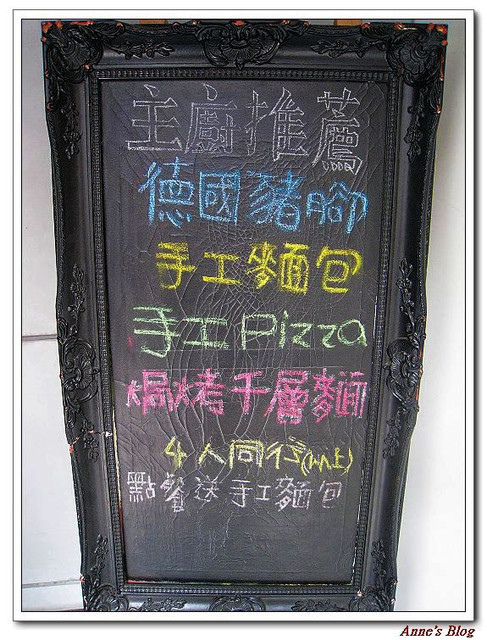 主廚推薦
德國豬腳
手工麵包
手工Pizza
焗烤千層麵
4人同行(以上)
點餐送手工麵包
Anne's Blog